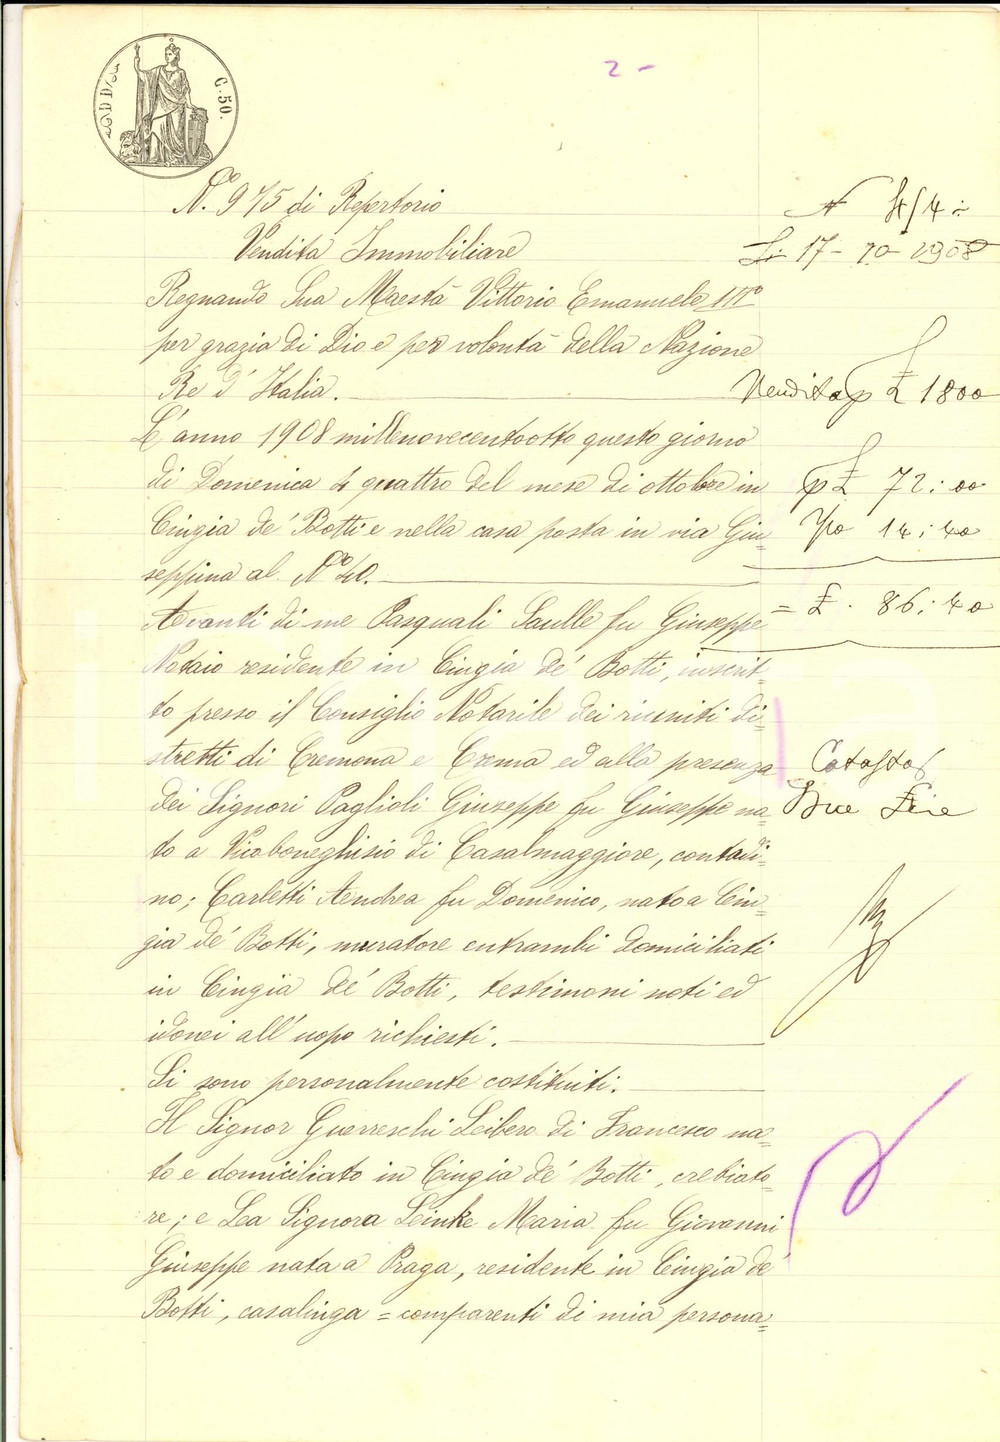 C. 50.
2 -
N.° 975 di Repertorio
Vendita Immobiliare
Regnando Sua Maestà Vittorio Emanuele III°
per grazia di Dio e per volontà della Nazione
Re d'Italia.
L'anno 1908 millenovecentootto questo giorno
di Domenica 4 quattro del mese di ottobre in
Cingia de' Botti e nella casa posta in via Giu=
seppina al N.° 40.
Avanti di me Pasquali Saulle fu Giuseppe
Notaio residente in Cingia de' Botti, inscrit=
to presso il Consiglio Notarile dei riuniti di=
stretti di Cremona e Crema ed alla presenza
dei Signori Paglioli Giuseppe fu Giuseppe na=
to a Vicoboneghisio di Casalmaggiore, contadi=
no; Carletti Andrea fu Domenico, nato a Cin=
gia de' Botti, muratore entrambi domiciliati
in Cingia de' Botti, testimoni noti ed
idonei all'uopo richiesti.
Si sono personalmente costituiti.
Il Signor Guerreschi Leibero di Francesco na=
to e domiciliato in Cingia de' Botti, crebiato=
re; e La Signora Leinke Maria fu Giovanni
Giuseppe nata a Praga, residente in Cingia de'
Botti, casalinga = comparenti di mia persona=
17 - 10 - 1908
Vendita p £ 1800
p £ 72:00
14:40
= £. 86:40